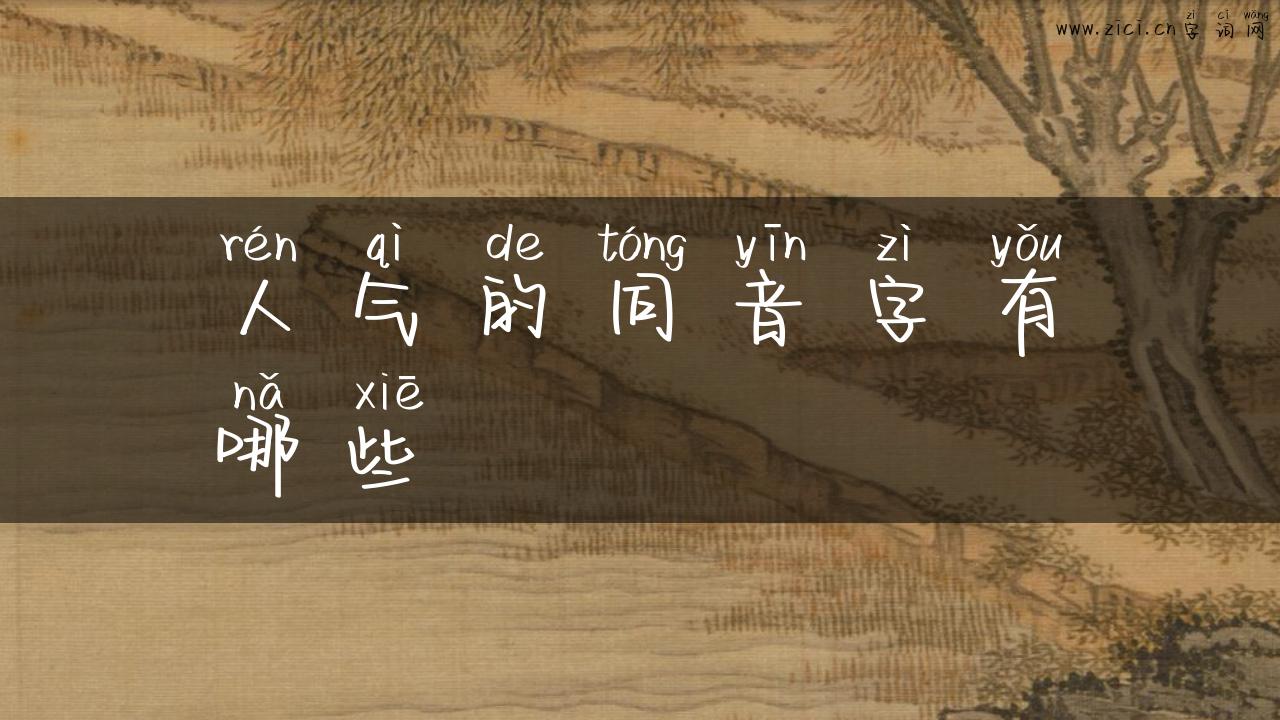 zì cí wǎng
www.zici.cn字词网
rén qì de tóng yīn zì yǒu
人气的同音字有
nǎ xiē
哪些